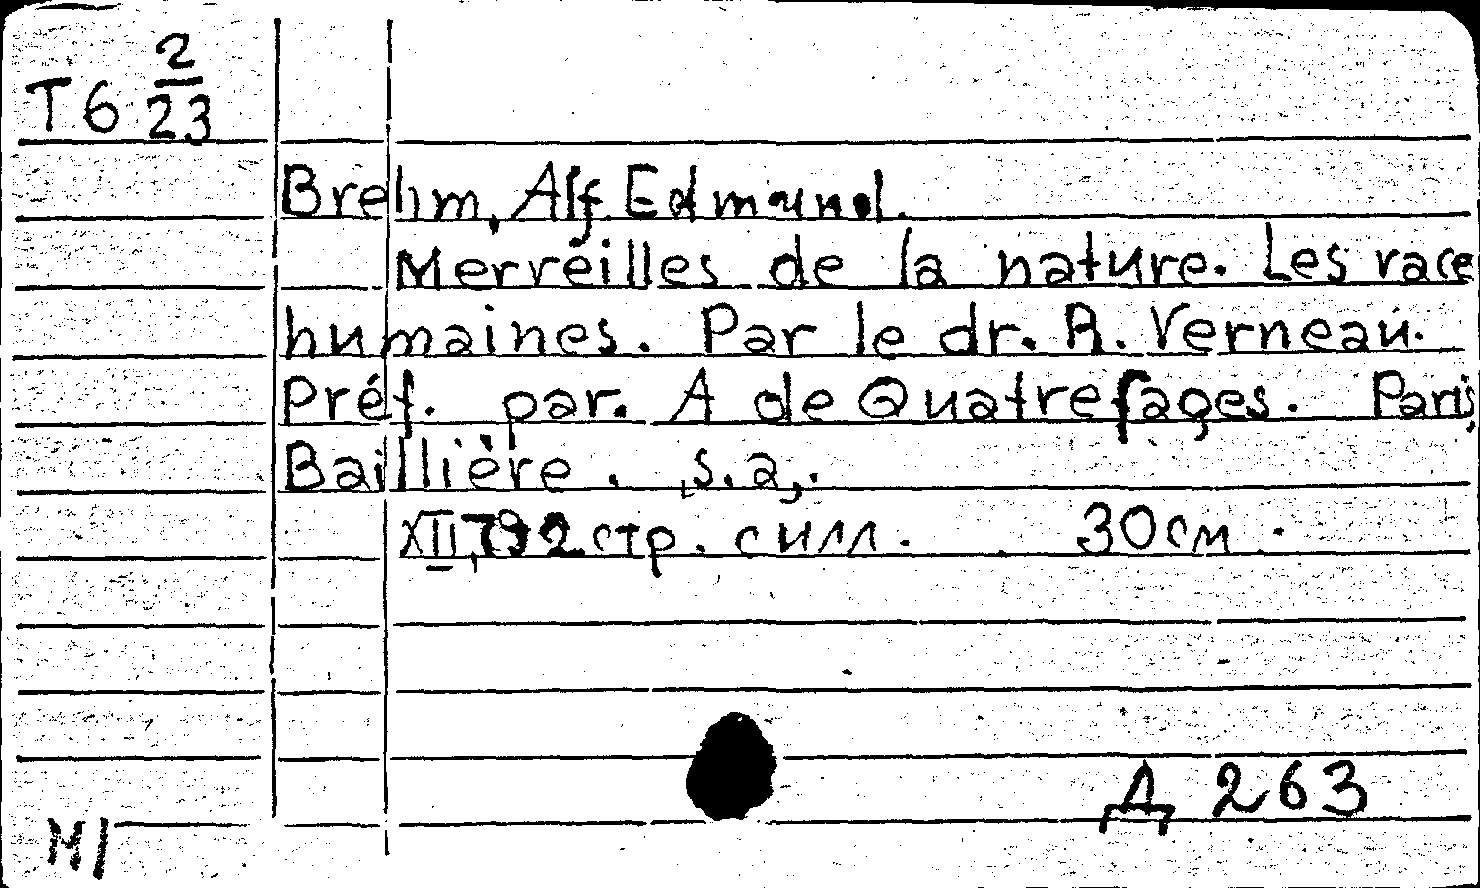 T6 2/23
Brehm, Alf. Edmund.
Merveilles de la nature. Les race
humaines. Par le dr. R. Verneau.
Préf. par. A de Quatrefages. Paris,
Baillière. s.a,.
XII, 792 стр. с илл. 30см.
Д 263